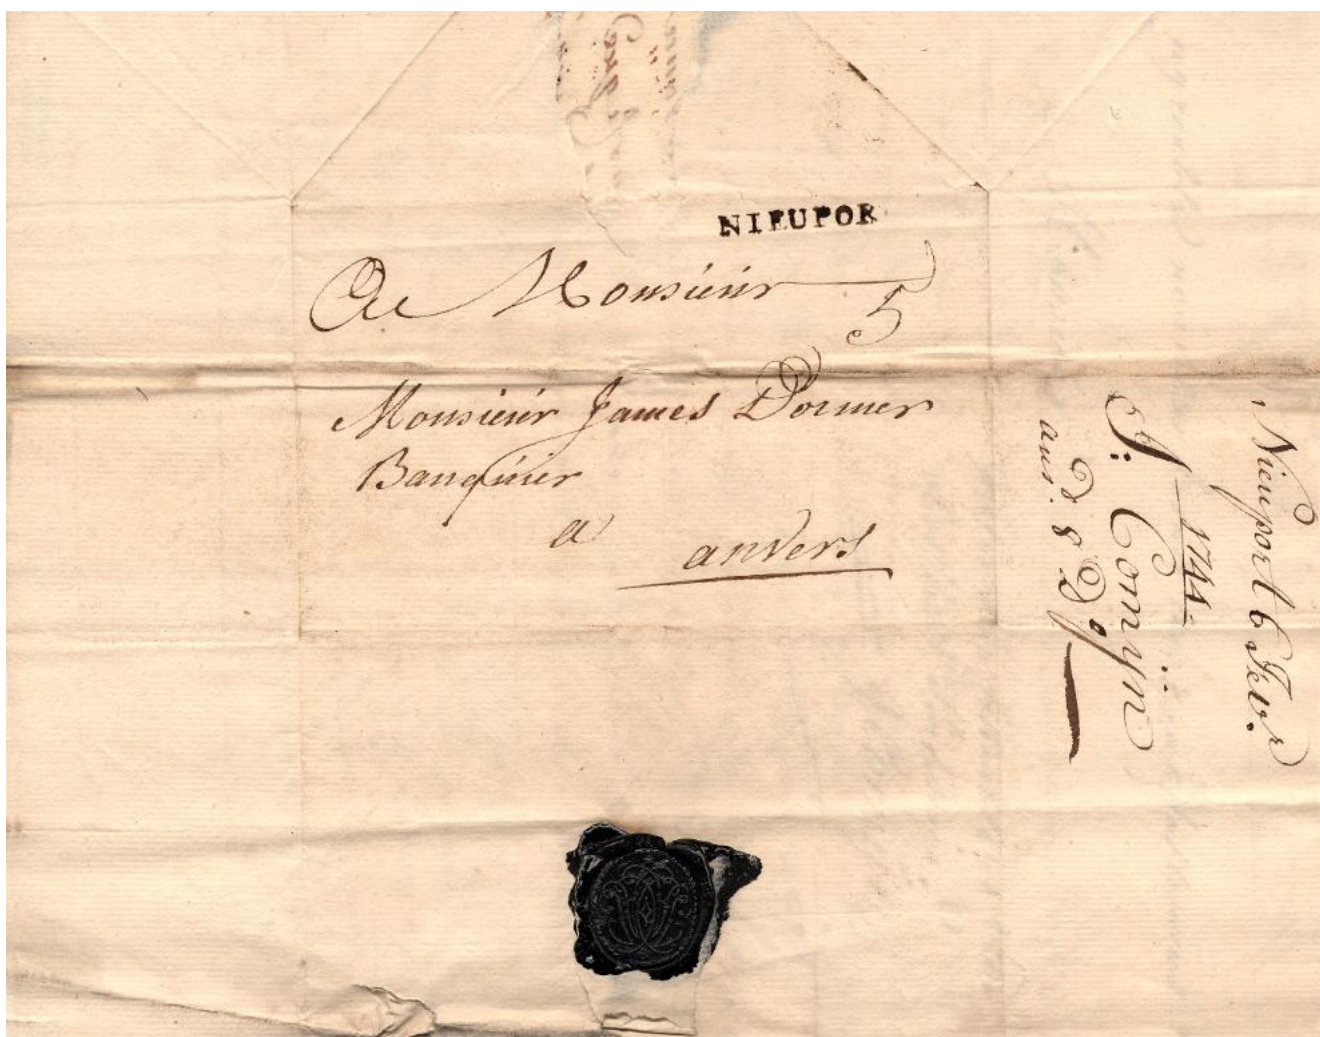 NIEUPOR
A Monsieür
5
Monsieür James Dormer
Banquier
a
anvers
Nieuport 6 Febr
1744.
J: Comÿn
ans. d 8 Do